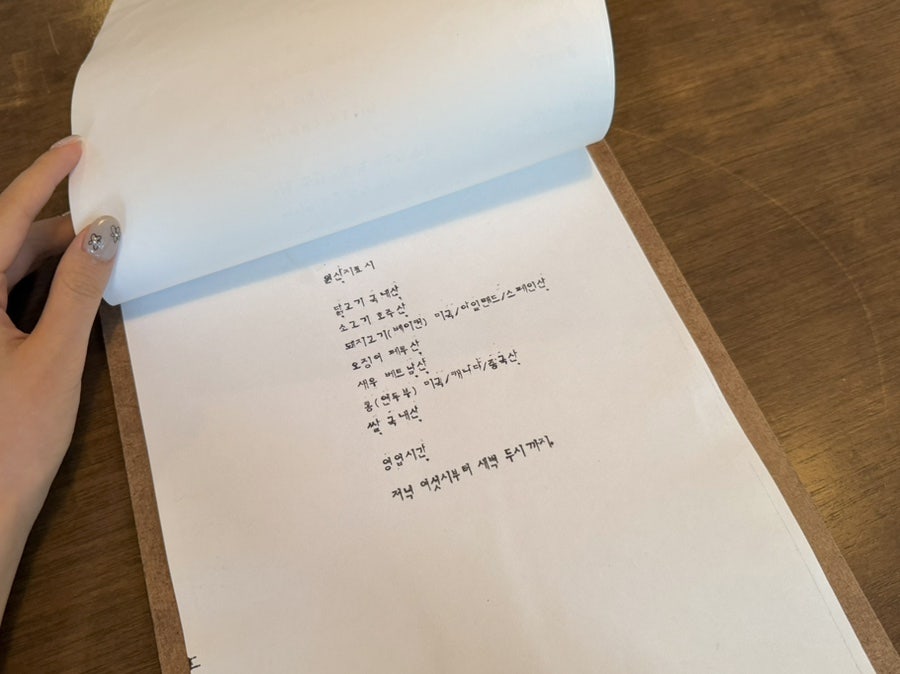 원산지표시
닭고기 국내산
소고기 호주산
돼지고기(베이컨) 미국/아일랜드/스페인산
오징어 페루산
새우 베트남산
콩(연두부) 미국/캐나다/중국산
쌀 국내산
영업시간
저녁 여섯시부터 새벽 두시까지.